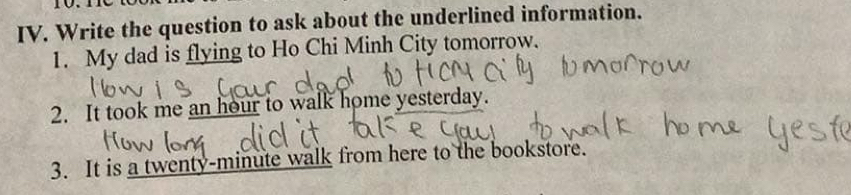 IV. Write the question to ask about the underlined information.
1. My dad is flying to Ho Chi Minh City tomorrow.
How is your dad to HCM city tomorrow
2. It took me an hour to walk home yesterday.
How long did it take you to walk home yeste
3. It is a twenty-minute walk from here to the bookstore.